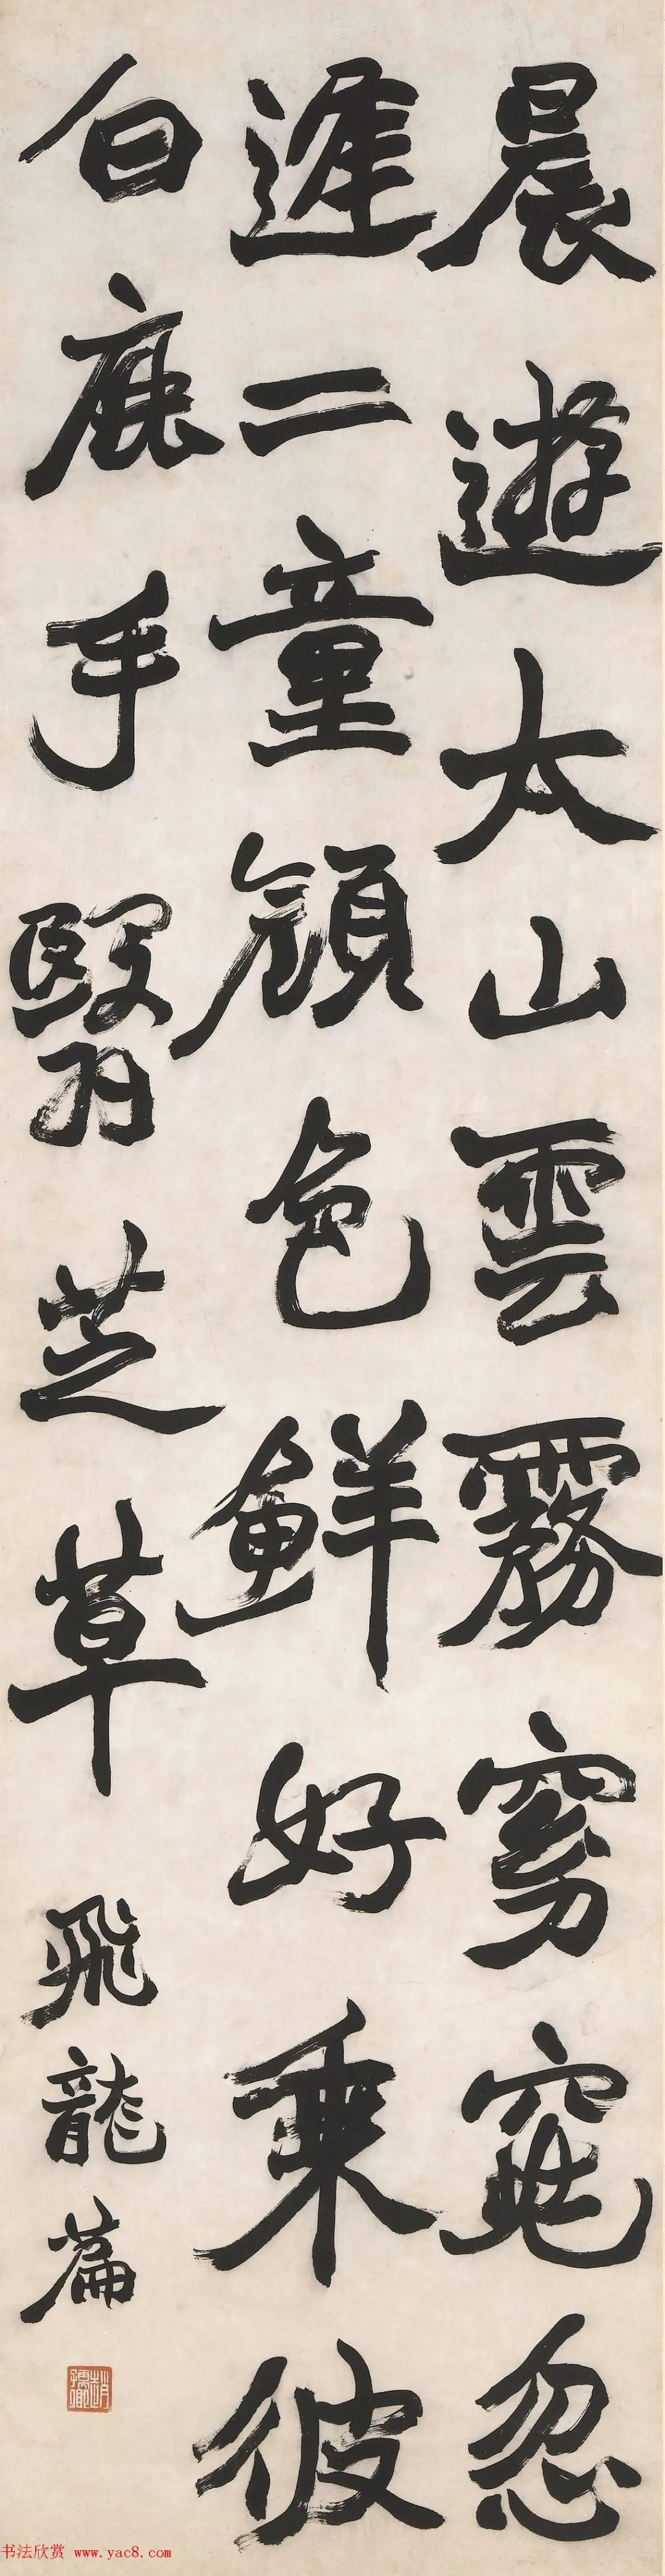 晨遊太山雲霧窈窕忽
逢二童顔色鮮好乘彼
白鹿手翳芝草
飛龍篇
书法欣赏 www.yac8.com